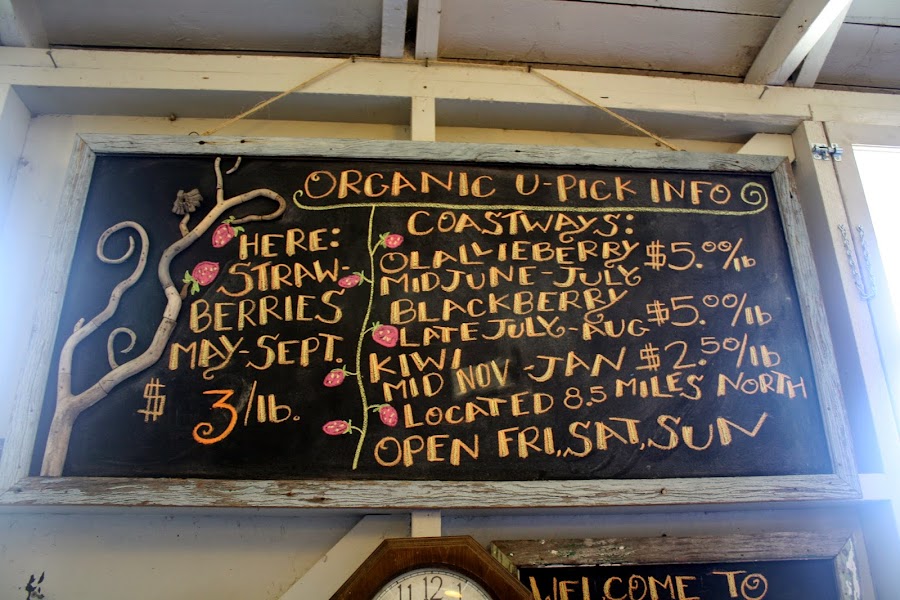 ORGANIC U-PICK INFO
HERE:
STRAW-
BERRIES
MAY-SEPT.
$3/lb.
COASTWAYS:
OLALLIEBERRY $5.00/lb
MID JUNE-JULY
BLACKBERRY
LATE JULY-AUG $5.00/lb
KIWI
MID NOV-JAN $2.50/lb
LOCATED 8.5 MILES NORTH
OPEN FRI., SAT., SUN
11 12 1
WELCOME TO